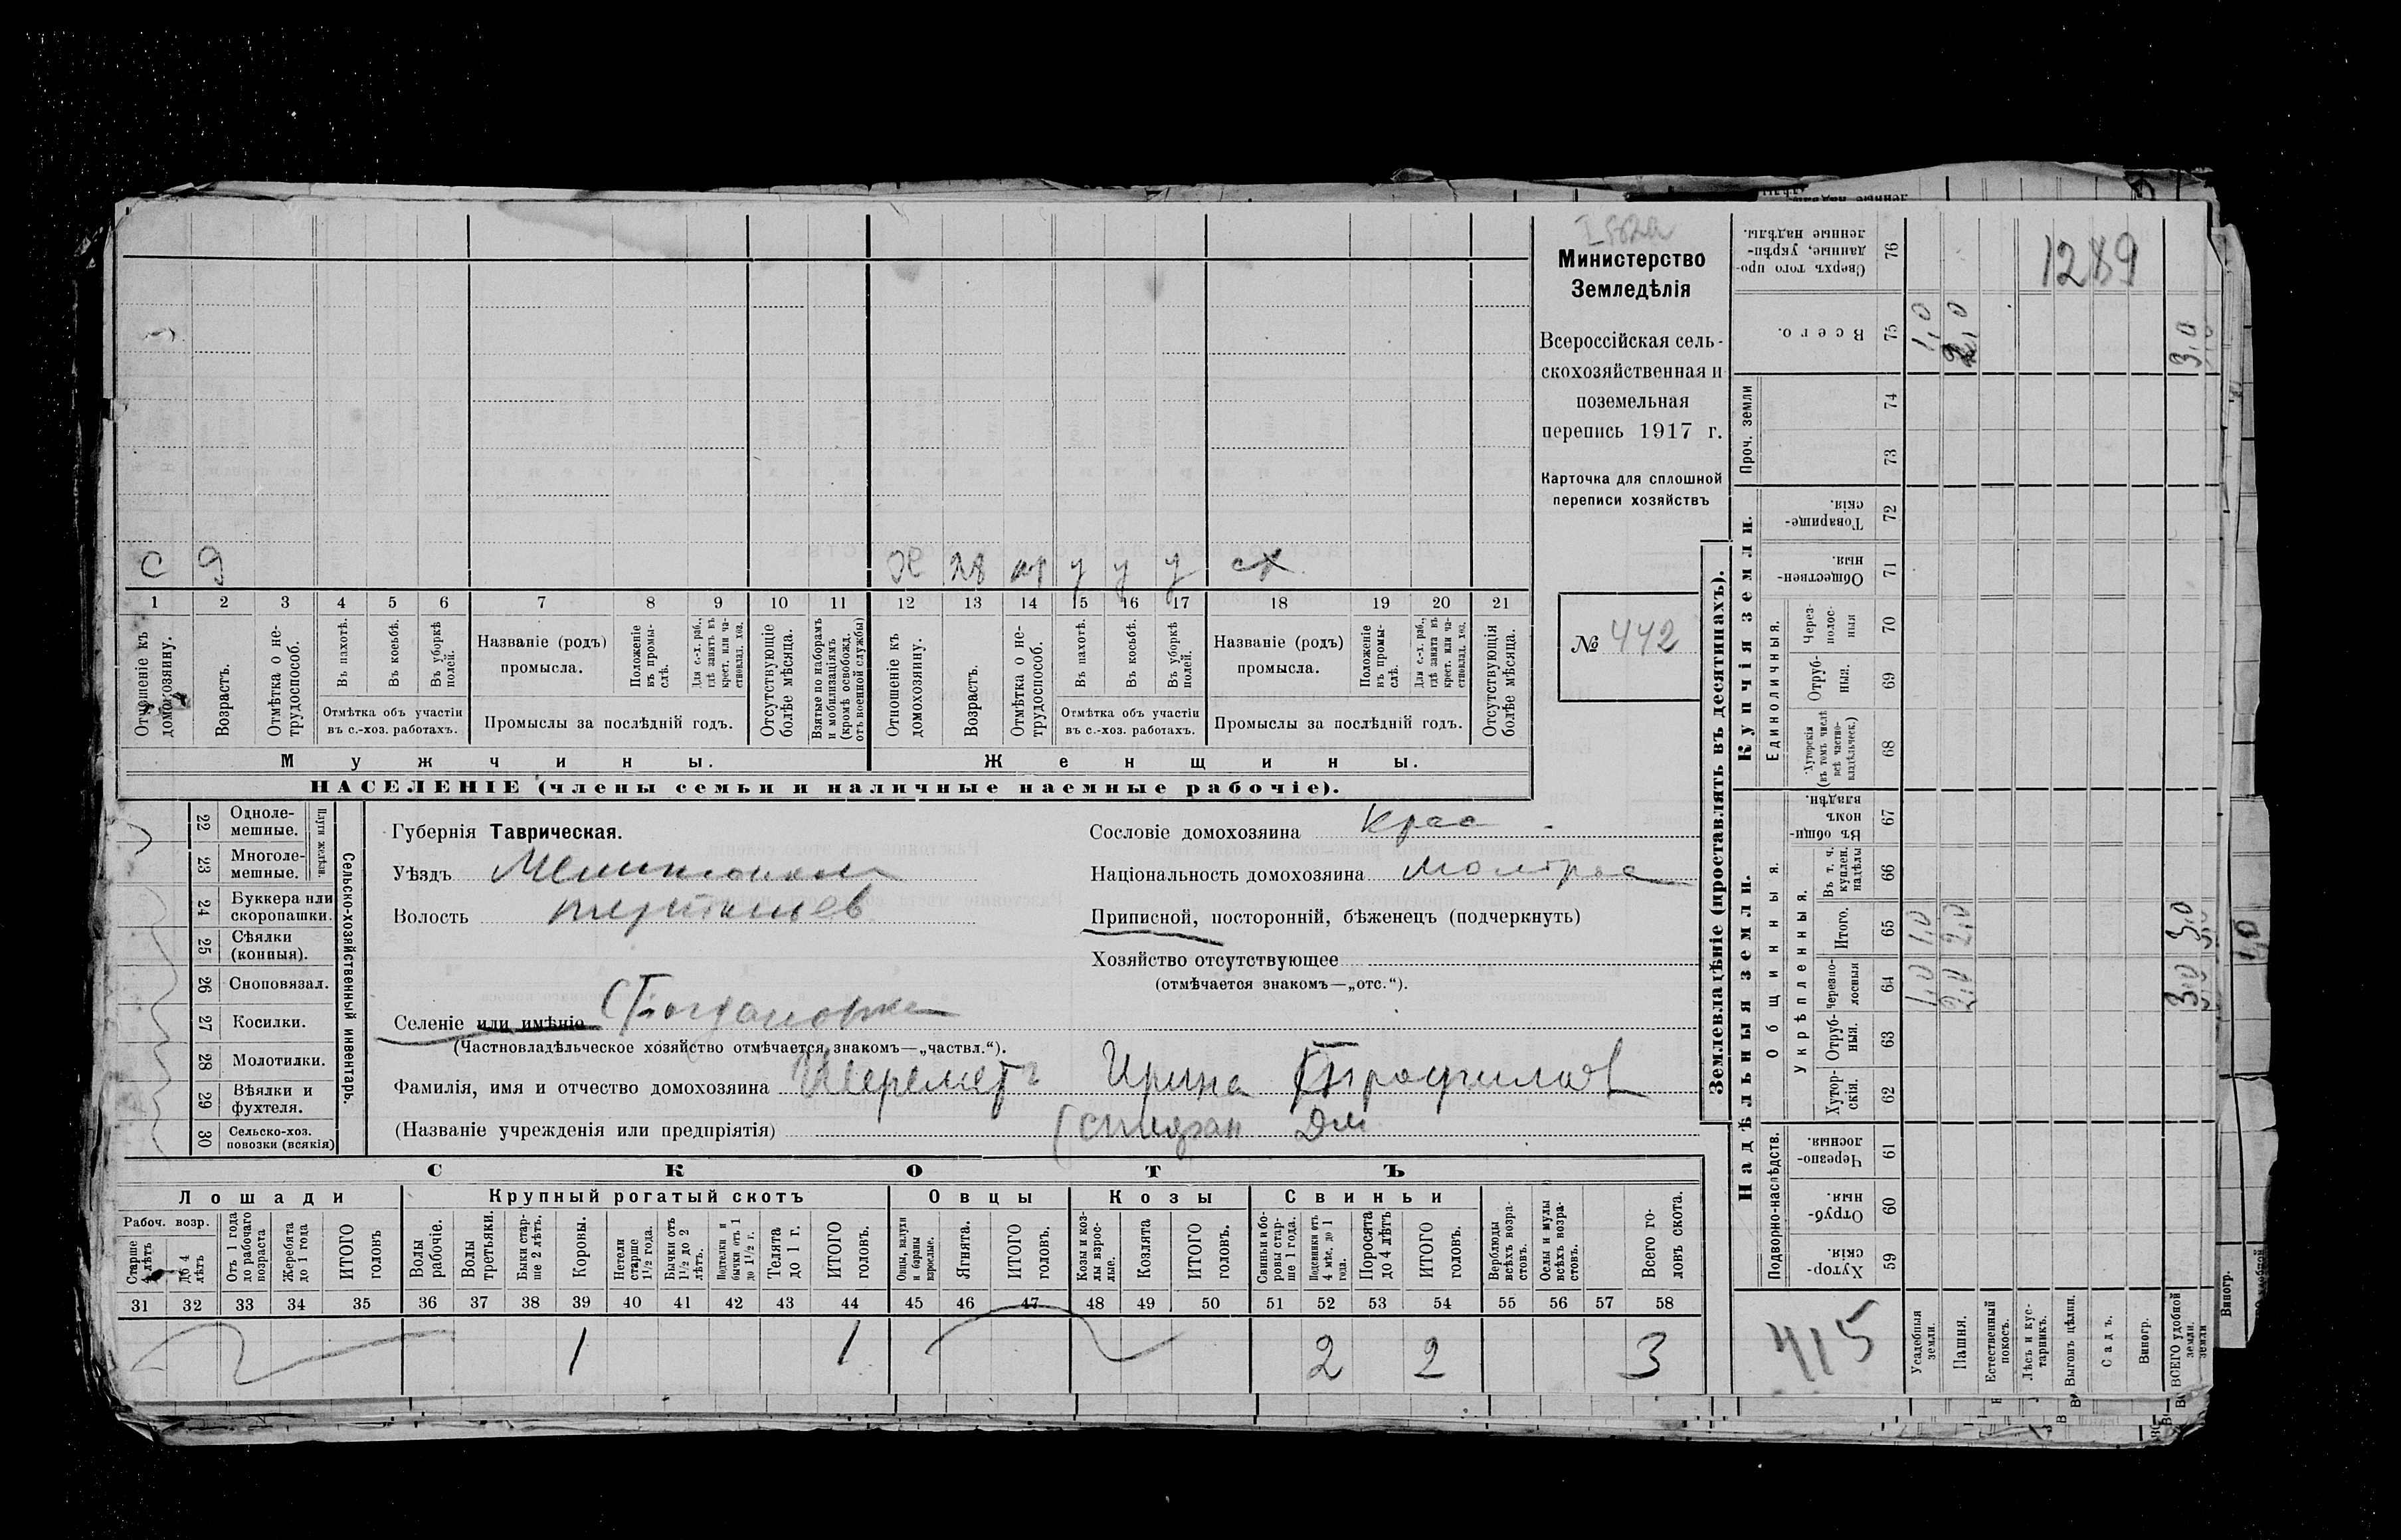 1289
Министерство
Земледѣлія
Всероссійская сель-
скохозяйственная и
поземельная
перепись 1917 г.
Карточка для сплошной
переписи хозяйствъ
№ 442
с 9
28  у у у сх
1 2 3 4 5 6 7 8 9 10 11 12 13 14 15 16 17 18 19 20 21
Отношеніе къ домохозяину.
Возрастъ.
Отмѣтка о не-трудоспособ.
Въ пахотѣ.
Въ косьбѣ.
Въ уборкѣ полей.
Отмѣтка объ участіи
въ с.-хоз. работахъ.
Названіе (родъ)
промысла.
Положеніе въ промы-слѣ.
Для с.-х. раб., гдѣ занятъ въ крест. или ча-стновлад. хоз.
Промыслы за послѣдній годъ.
Отсутствующіе болѣе мѣсяца.
Взятые по наборамъ и мобилизаціямъ (кромѣ освобожд. отъ военной службы)
Отношеніе къ домохозяину.
Возрастъ.
Отмѣтка о не-трудоспособ.
Въ пахотѣ.
Въ косьбѣ.
Въ уборкѣ полей.
Отмѣтка объ участіи
въ с.-хоз. работахъ.
Названіе (родъ)
промысла.
Положеніе въ промы-слѣ.
Для с.-х. раб., гдѣ занята въ крест. или ча-стновлад. хоз.
Промыслы за послѣдній годъ.
Отсутствующія болѣе мѣсяца.
Мужчины. Женщины.
НАСЕЛЕНІЕ (члены семьи и наличные наемные рабочіе).
22 Одноле-мешные.
23 Многоле-мешные.
Плуги желѣзн.
24 Буккера или скоропашки.
25 Сѣялки (конныя).
26 Сноповязал.
27 Косилки.
28 Молотилки.
29 Вѣялки и фухтеля.
30 Сельско-хоз. повозки (всякія)
Сельско-хозяйственный инвентарь.
Губернія Таврическая.
Уѣздъ
Волость
Селеніе или имѣніе Богдановка
(Частновладѣльческое хозяйство отмѣчается знакомъ—„частвл.“).
Фамилія, имя и отчество домохозяина Шереметъ Ирина Трофимов
(Названіе учрежденія или предпріятія)
Сословіе домохозяина
Національность домохозяина
Приписной, посторонній, бѣженецъ (подчеркнуть)
Хозяйство отсутствующее
(отмѣчается знакомъ—„отс.“).
СКОТЪ
Лошади Крупный рогатый скотъ Овцы Козы Свиньи
Рабоч. возр.
Старше 4 лѣтъ
До 4 лѣтъ
Отъ 1 года до рабочаго возраста
Жеребята до 1 года
ИТОГО головъ
Волы рабочіе.
Волы третьяки.
Быки стар-ше 2 лѣтъ.
Коровы.
Нетели старше 1½ года.
Бычки отъ 1½ до 2 лѣтъ.
Подтелки и бычки отъ 1 до 1½ г.
Телята до 1 г.
ИТОГО головъ.
Овцы, валухи и бараны взрослые.
Ягнята.
ИТОГО головъ.
Козы и коз-лы взрос-лые.
Козлята
ИТОГО головъ.
Свиньи и бо-ровы стар-ше 1 года.
Подсвинки отъ 4 мѣс. до 1 года.
Поросята до 4 лѣтъ
ИТОГО головъ.
Верблюды всѣхъ возра-стовъ.
Ослы и мулы всѣхъ возра-стовъ.
Всего го-ловъ скота.
31 32 33 34 35 36 37 38 39 40 41 42 43 44 45 46 47 48 49 50 51 52 53 54 55 56 57 58
1 1 2 2 3
Землевладѣніе (проставлять въ десятинахъ).
Надѣльныя земли.
Купчія земли.
Проч. земли
Подворно-наслѣдств.
Общинныя.
Укрѣпленныя.
Единоличныя.
Сверхъ того про-данные, укрѣп-ленные надѣлы. 76
Всего. 75 1,0 2,0 3,0
74
73
Товарище-скія. 72
Обществен-ныя. 71
Через-полос-ныя 70
Отруб-ныя. 69
Хуторскія (въ томъ числѣ всѣ частно-владѣльческ.) 68
Въ общин-номъ владѣн. 67
Въ т. ч. куплен. надѣлы 66
Итого. 65 1,0 2,0 3,0
Черезпо-лосныя 64 1,0 2,0 3,0
Отруб-ныя. 63
Хутор-скія. 62
Черезпо-лосныя. 61
Отруб-ныя. 60
Хутор-скія. 59
415
Усадебныя земли.
Пашня.
Естественный покосъ.
Лѣсъ и кус-тарникъ.
Выгонъ цѣлин.
Садъ.
Виногр.
ВСЕГО удобной земли.
1,0
Виногр.